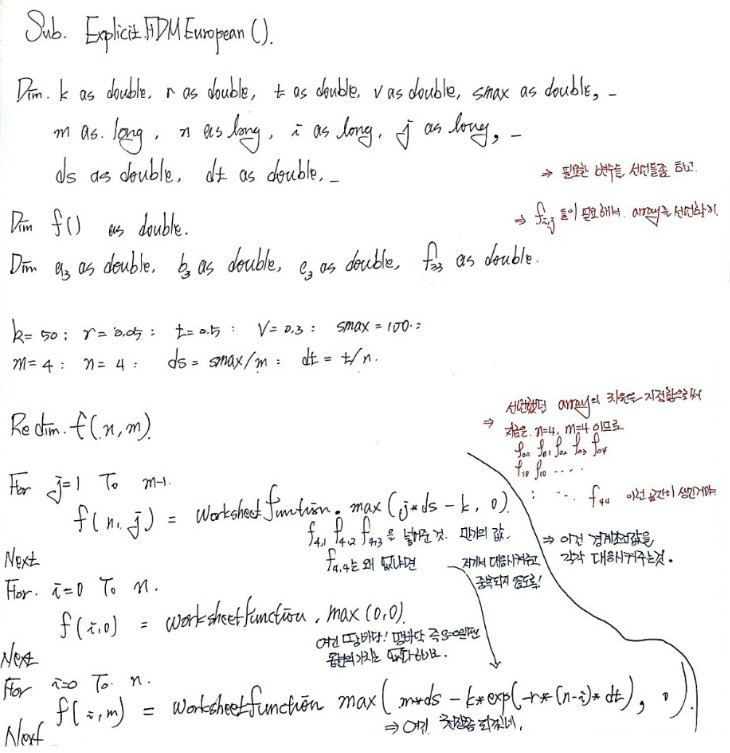 Sub. Explicit FDM European ().
Dim. k as double, r as double, t as double, v as double, smax as double, _
m as. long, n as long, i as long, j as long, _
ds as double, dt as double, _
⇒ 필요한 변수들 선언들좀 하고.
Dim f() as double.
⇒ fi,j 들이 필요해서. array를 선언하기.
Dim a3 as double, b3 as double, c3 as double, f33 as double.
k= 50 : r= 0.05 : t= 0.5 : V= 0.3 : smax = 100 :
m= 4 : n= 4 : ds = smax/m : dt = t/n.
Redim. f(n,m).
⇒ 선언했던 array의 차원을 지정함으로써
지금은 n=4, m=4 이므로
f00 f01 f02 f03 f04
f10 f10 ....
: ·.. f44 이런 공간이 생긴거야.
For j=1 To m-1.
f(n,j) = worksheetfunction. max (j*ds - k, 0).
f4,1 f4,2 f4,3 을 넣어준 것. 만기의 값.
⇒ 이건 경계조건값을
각각 대응시켜주는것.
Next
f4,4는 왜 없냐면
저기서 대응시켜주고
중복되지 않도록!
For. i=0 To n.
f(i,0) = worksheetfunction. max (0,0).
여긴 땅바닥! 땅바닥 즉 S=0이면
옵션의가치는 없다 이거.
Next
For i=0 To n.
f(i,m) = worksheetfunction max( m*ds - k*exp(-r*(n-i)*dt), 0 ).
⇒ 여긴 천장쯤 되겠네.
Next